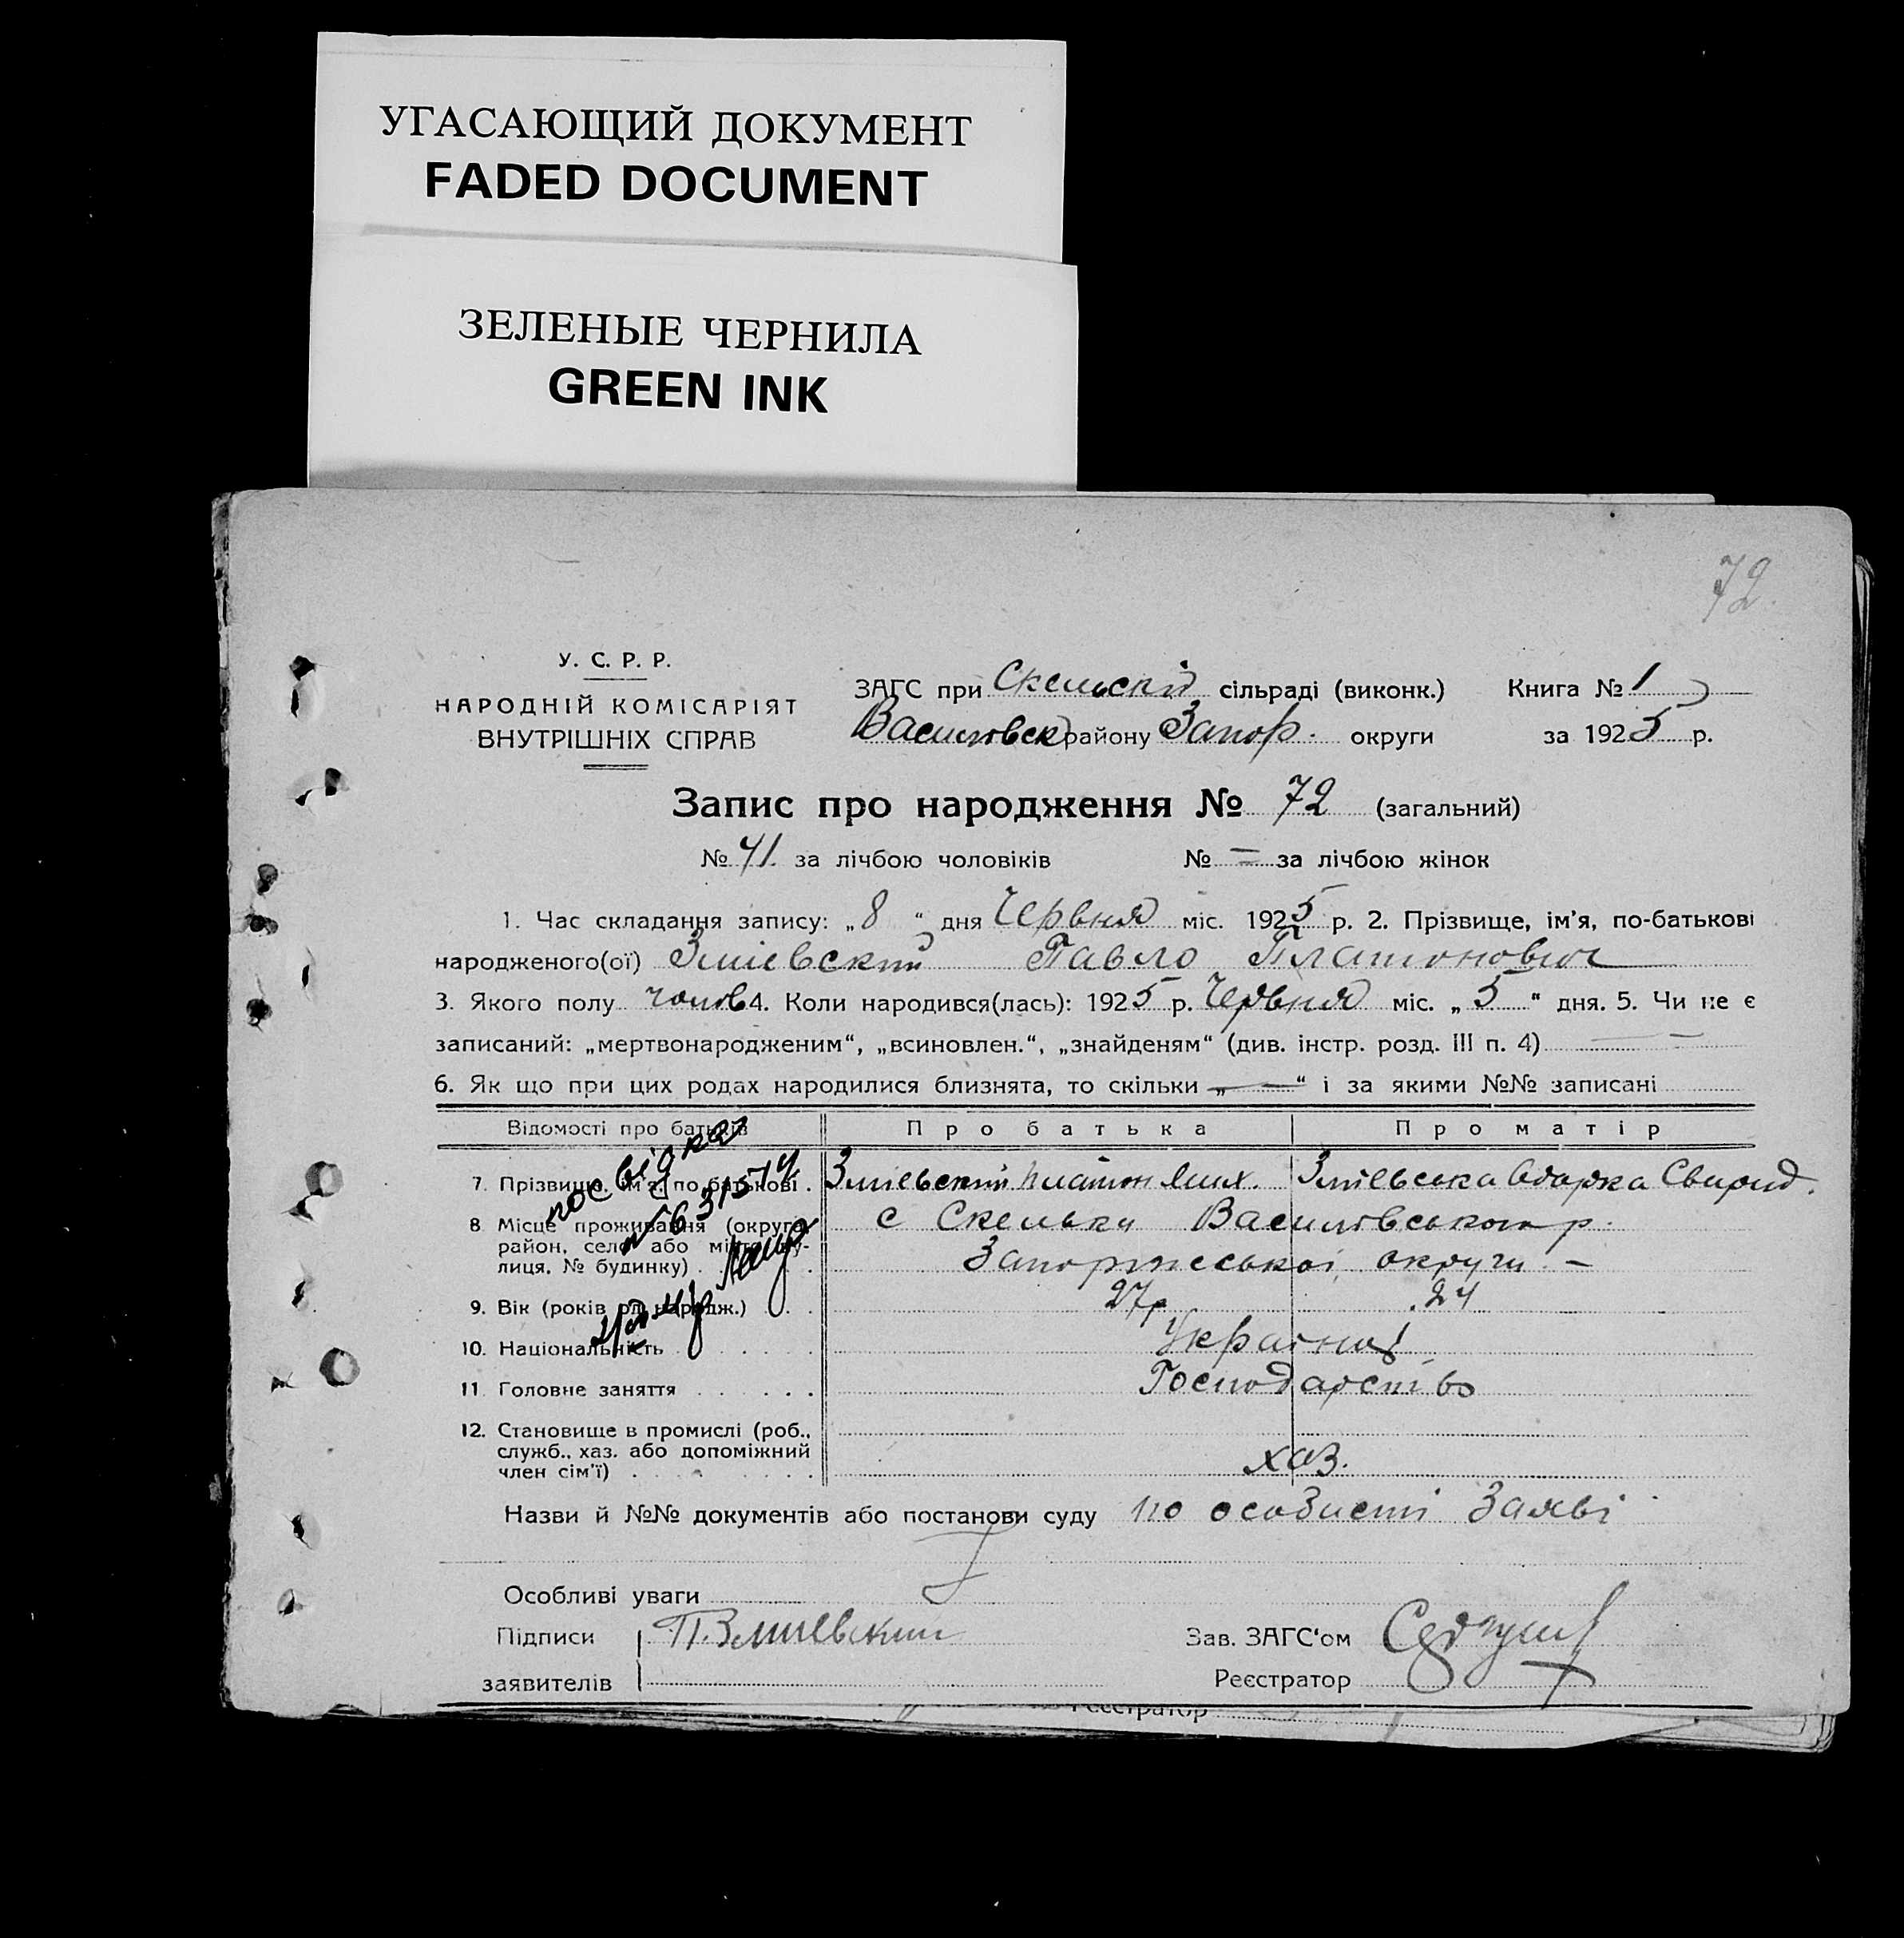 УГАСАЮЩИЙ ДОКУМЕНТ
FADED DOCUMENT
ЗЕЛЕНЫЕ ЧЕРНИЛА
GREEN INK
72
У. С. Р. Р.
НАРОДНІЙ КОМІСАРІЯТ
ВНУТРІШНІХ СПРАВ
ЗАГС при Скельській сільраді (виконк.) Книга № 1
Василівськ району Запор. округи за 1925 р.
Запис про народження № 72 (загальний)
№ 41 за лічбою чоловіків № = за лічбою жінок
1. Час складання запису: „8“ дня Червня міс. 1925 р. 2. Прізвище, ім'я, по-батькові
народженого(ої) Зміевский Павло Платонович
3. Якого полу чолов 4. Коли народився(лась): 1925 р. Червня міс. „5“ дня. 5. Чи не є
записаний: „мертвонародженим“, „всиновлен.“, „знайденям“ (див. інстр. розд. III п. 4) — —
6. Як що при цих родах народилися близнята, то скільки „—“ і за якими №№ записані
Відомості про батьків Про батька Про матір
7. Прізвище, ім'я, по батькові Зміевский Платон Мих. Зміевська Одарка Свирид.
8. Місце проживання (округа, район, село або місто, ву-
лиця, № будинку) с Скельки Василівського р.
Запоріжської округи —
9. Вік (років від народж.) 27р 24
10. Національність Україн
11. Головне заняття Господарство
12. Становище в промислі (роб.,
служб., хаз. або допоміжний
член сім'ї) хаз.
посвідка
Назви й №№ документів або постанови суду по особисті Заяві
Особливі уваги
Підписи П. Змиевский Зав. ЗАГС'ом
заявителів Реєстратор
Реєстратор